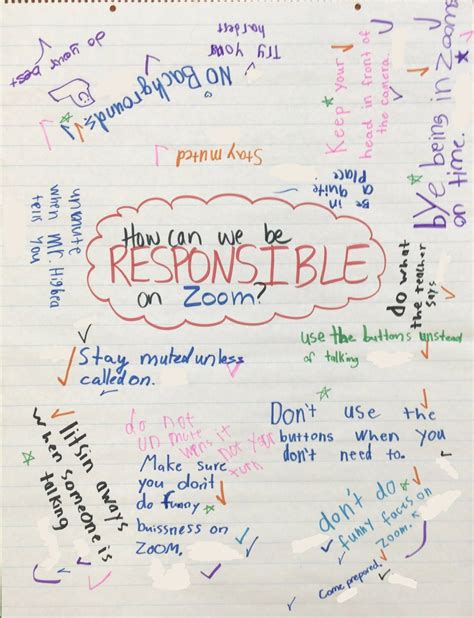 do your best
NO Backgrounds
Try your
hardest
Keep your
head in front of
the camera.
bye being in Zooms
on time.
Stay muted
be in
a quite
place
unmute
when Mr. Higbea
tells You
How can we be
RESPONSIBLE
on Zoom?
do what
the teacher
says
use the buttons unstead
of talking
Stay muted unless
called on.
litsin aways
when someone is
talking
do not
un mute
wens it not your
turn
Make sure
you don't
do funny
buissness on
ZOOM.
Don't use the
buttons when you
don't need to.
don't do
funny faces on
Zoom.
Come prepared.